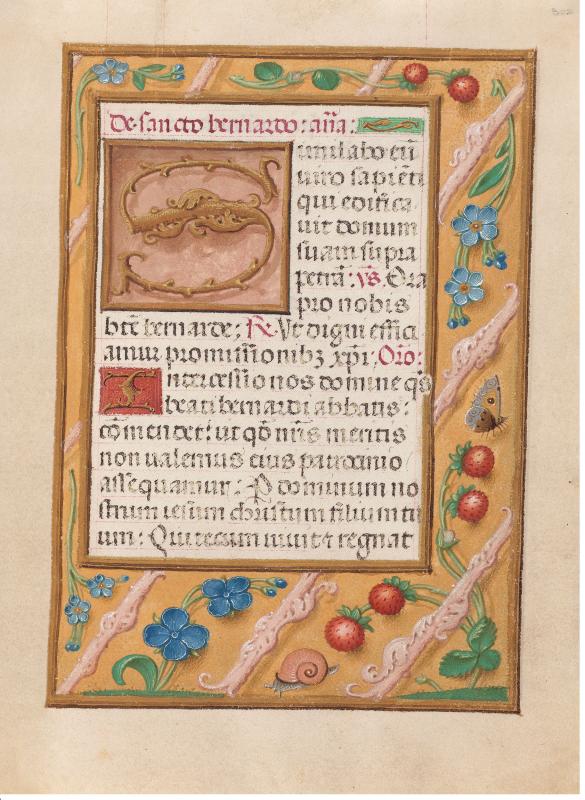 De sancto bernardo: añа:
Similabo eū
uiro sapiēti
qui edifica
uit domum
suam supra
petrā: v̄s. Ora
pro nobis
btē bernarde: R̄. Vt digni effici
amur promissionibȝ xp̄i: Oro:
Intercessio nos domine qs̄
beati bernardi abbatis:
cōmendet: ut qd̄ nr̄is meritis
non ualemus eius patrocinio
assequamur: P dominum no
strum iesum christum filium tu
um: Qui tecum uiuit & regnat